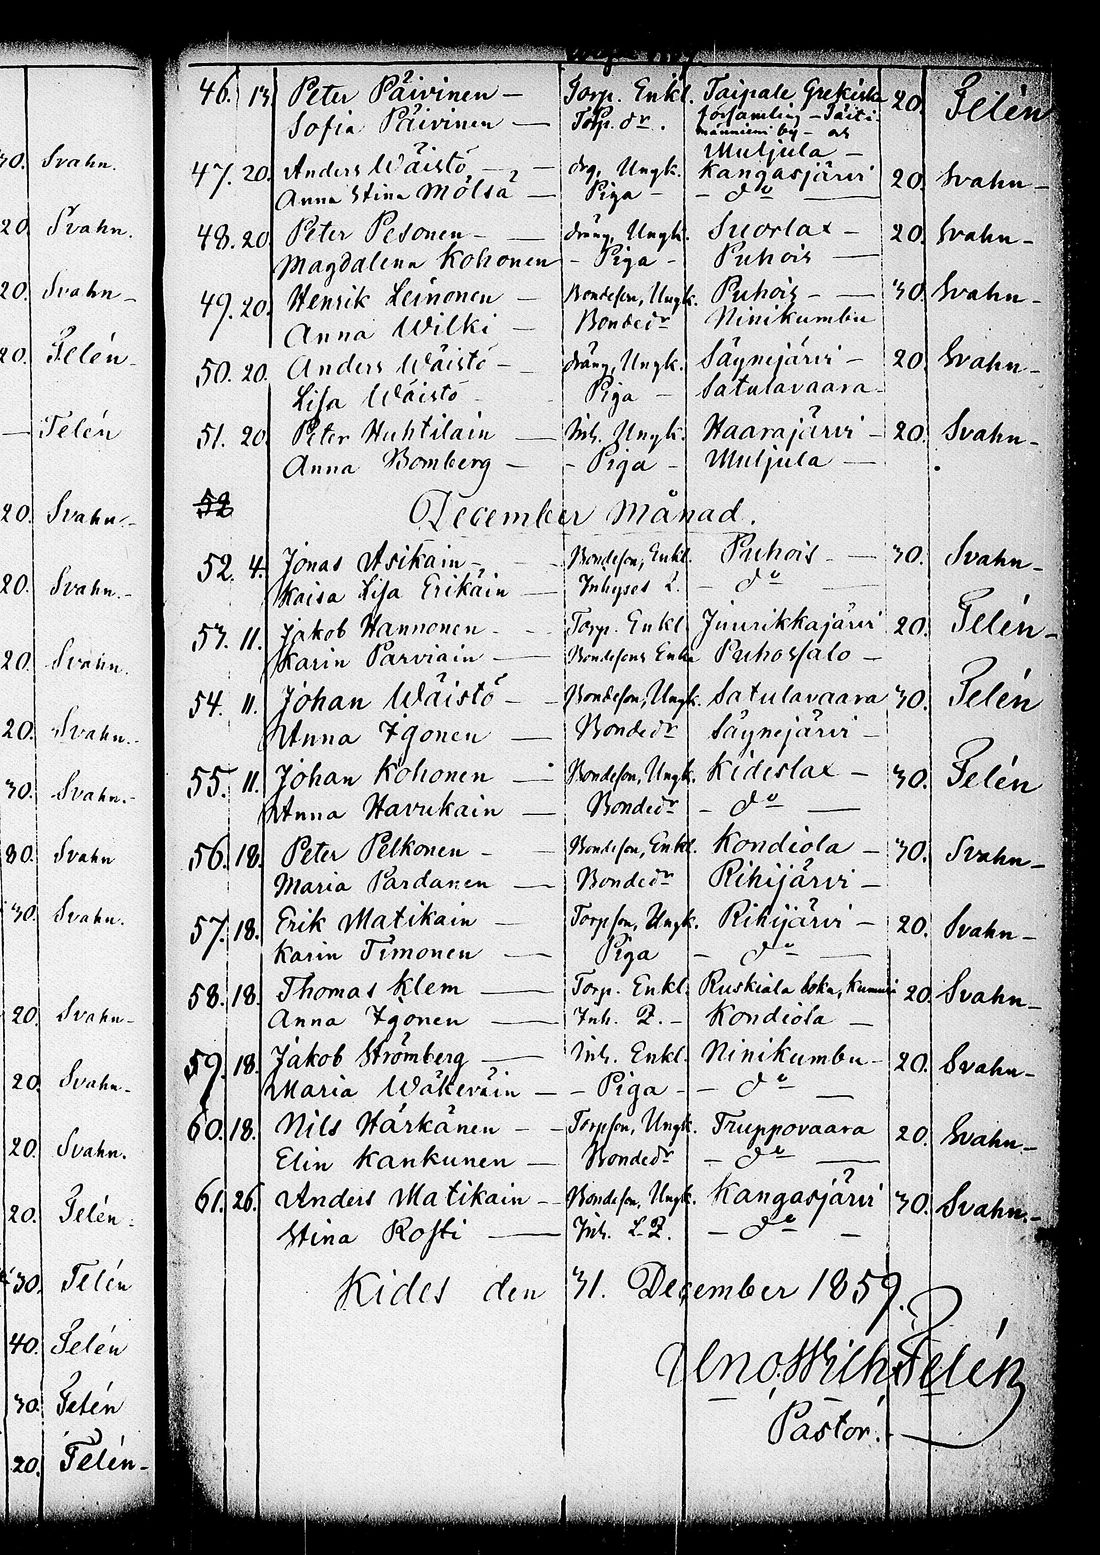 30. Svahn.
20. Svahn.
20. Svahn -
20. Telén -
- Telén
20. Svahn -
20. Svahn. -
20. Svahn.
20. Svahn. -
30. Svahn. -
30. Svahn
30. Svahn.
20. Svahn -
20. Svahn -
20. Svahn.
20. Telén -
30. Telén
40. Telén
30. Telén
20. Telén -
46. 13 Peter Päivinen - Torp. Enkl. Taipale Grekiska 20. Telén
Sofia Päivinen - Torp. dr. församling - Päiti-
männiemi by - os
Muljula -
47. 20. Anders Wäistö - - drg. Ungk. Kangasjärvi 20. Svahn -
Anna Stina Mölsä - Piga - - do -
48. 20. Peter Pesonen - - dräng, Ungk. Suorlax - 20. Svahn -
Magdalena Kohonen - Piga - Puhois -
49. 20. Henrik Leinonen - Bondeson, Ungk. Puhois - - 30. Svahn -
Anna Wilki - Bondedr Ninikumbu
50. 20. Anders Wäistö - dräng, Ungk. Säynejärvi - 20. Svahn -
Lisa Wäistö - Piga - Satulavaara -
51. 20. Peter Huhtilain - Inh. Ungk. Haarajärvi - 20. Svahn -
Anna Bomberg - - Piga - Muljula -
52
December Månad.
52. 4. Jonas Asikain - - Bondeson, Enkl. Puhois - 30. Svahn -
Kaisa Lisa Erikäin - Inhyses E. - do -
53. 11. Jakob Hannonen - - Torp. Enkl. Juurikkajärvi 20. Telén -
Karin Parviain - Bondesons Enka Puhossalo -
54. 11. Johan Wäistö - - Bondeson, Ungk. Satulavaara 30. Telén
Anna Igonen - Bondedr Säynejärvi -
55. 11. Johan Kohonen - Bondeson, Ungk. Kideslax - 30. Telén
Anna Havukain - Bondedr - do -
56. 18. Peter Pelkonen - - Bondeson, Enkl. Kondiola - 30. Svahn -
Maria Pardanen - Bondedr Rihijärvi -
57. 18. Erik Matikain - Torpson, Ungk. Rihijärvi - 20. Svahn -
Karin Timonen - Piga - do -
58. 18. Thomas Klem - Torp. Enkl. Ruskiala Sokn, 20. Svahn -
Anna Igonen - Inh. E. - Kondiola -
59. 18. Jakob Strömberg - Inh. Enkl. Ninikumbu - 20. Svahn -
Maria Wäkeväin - - Piga - - do -
60. 18. Nils Härkänen - - Torpson, Ungk. Truppovaara 20. Svahn -
Elin Kankunen - Bondedr - do -
61. 26. Anders Matikain - Bondeson, Ungk. Kangasjärvi 30. Svahn. -
Stina Rosti - Inh. E. - do -
Kides den 31. December 1859.
Uno. Wilh. Telén
Pastor.